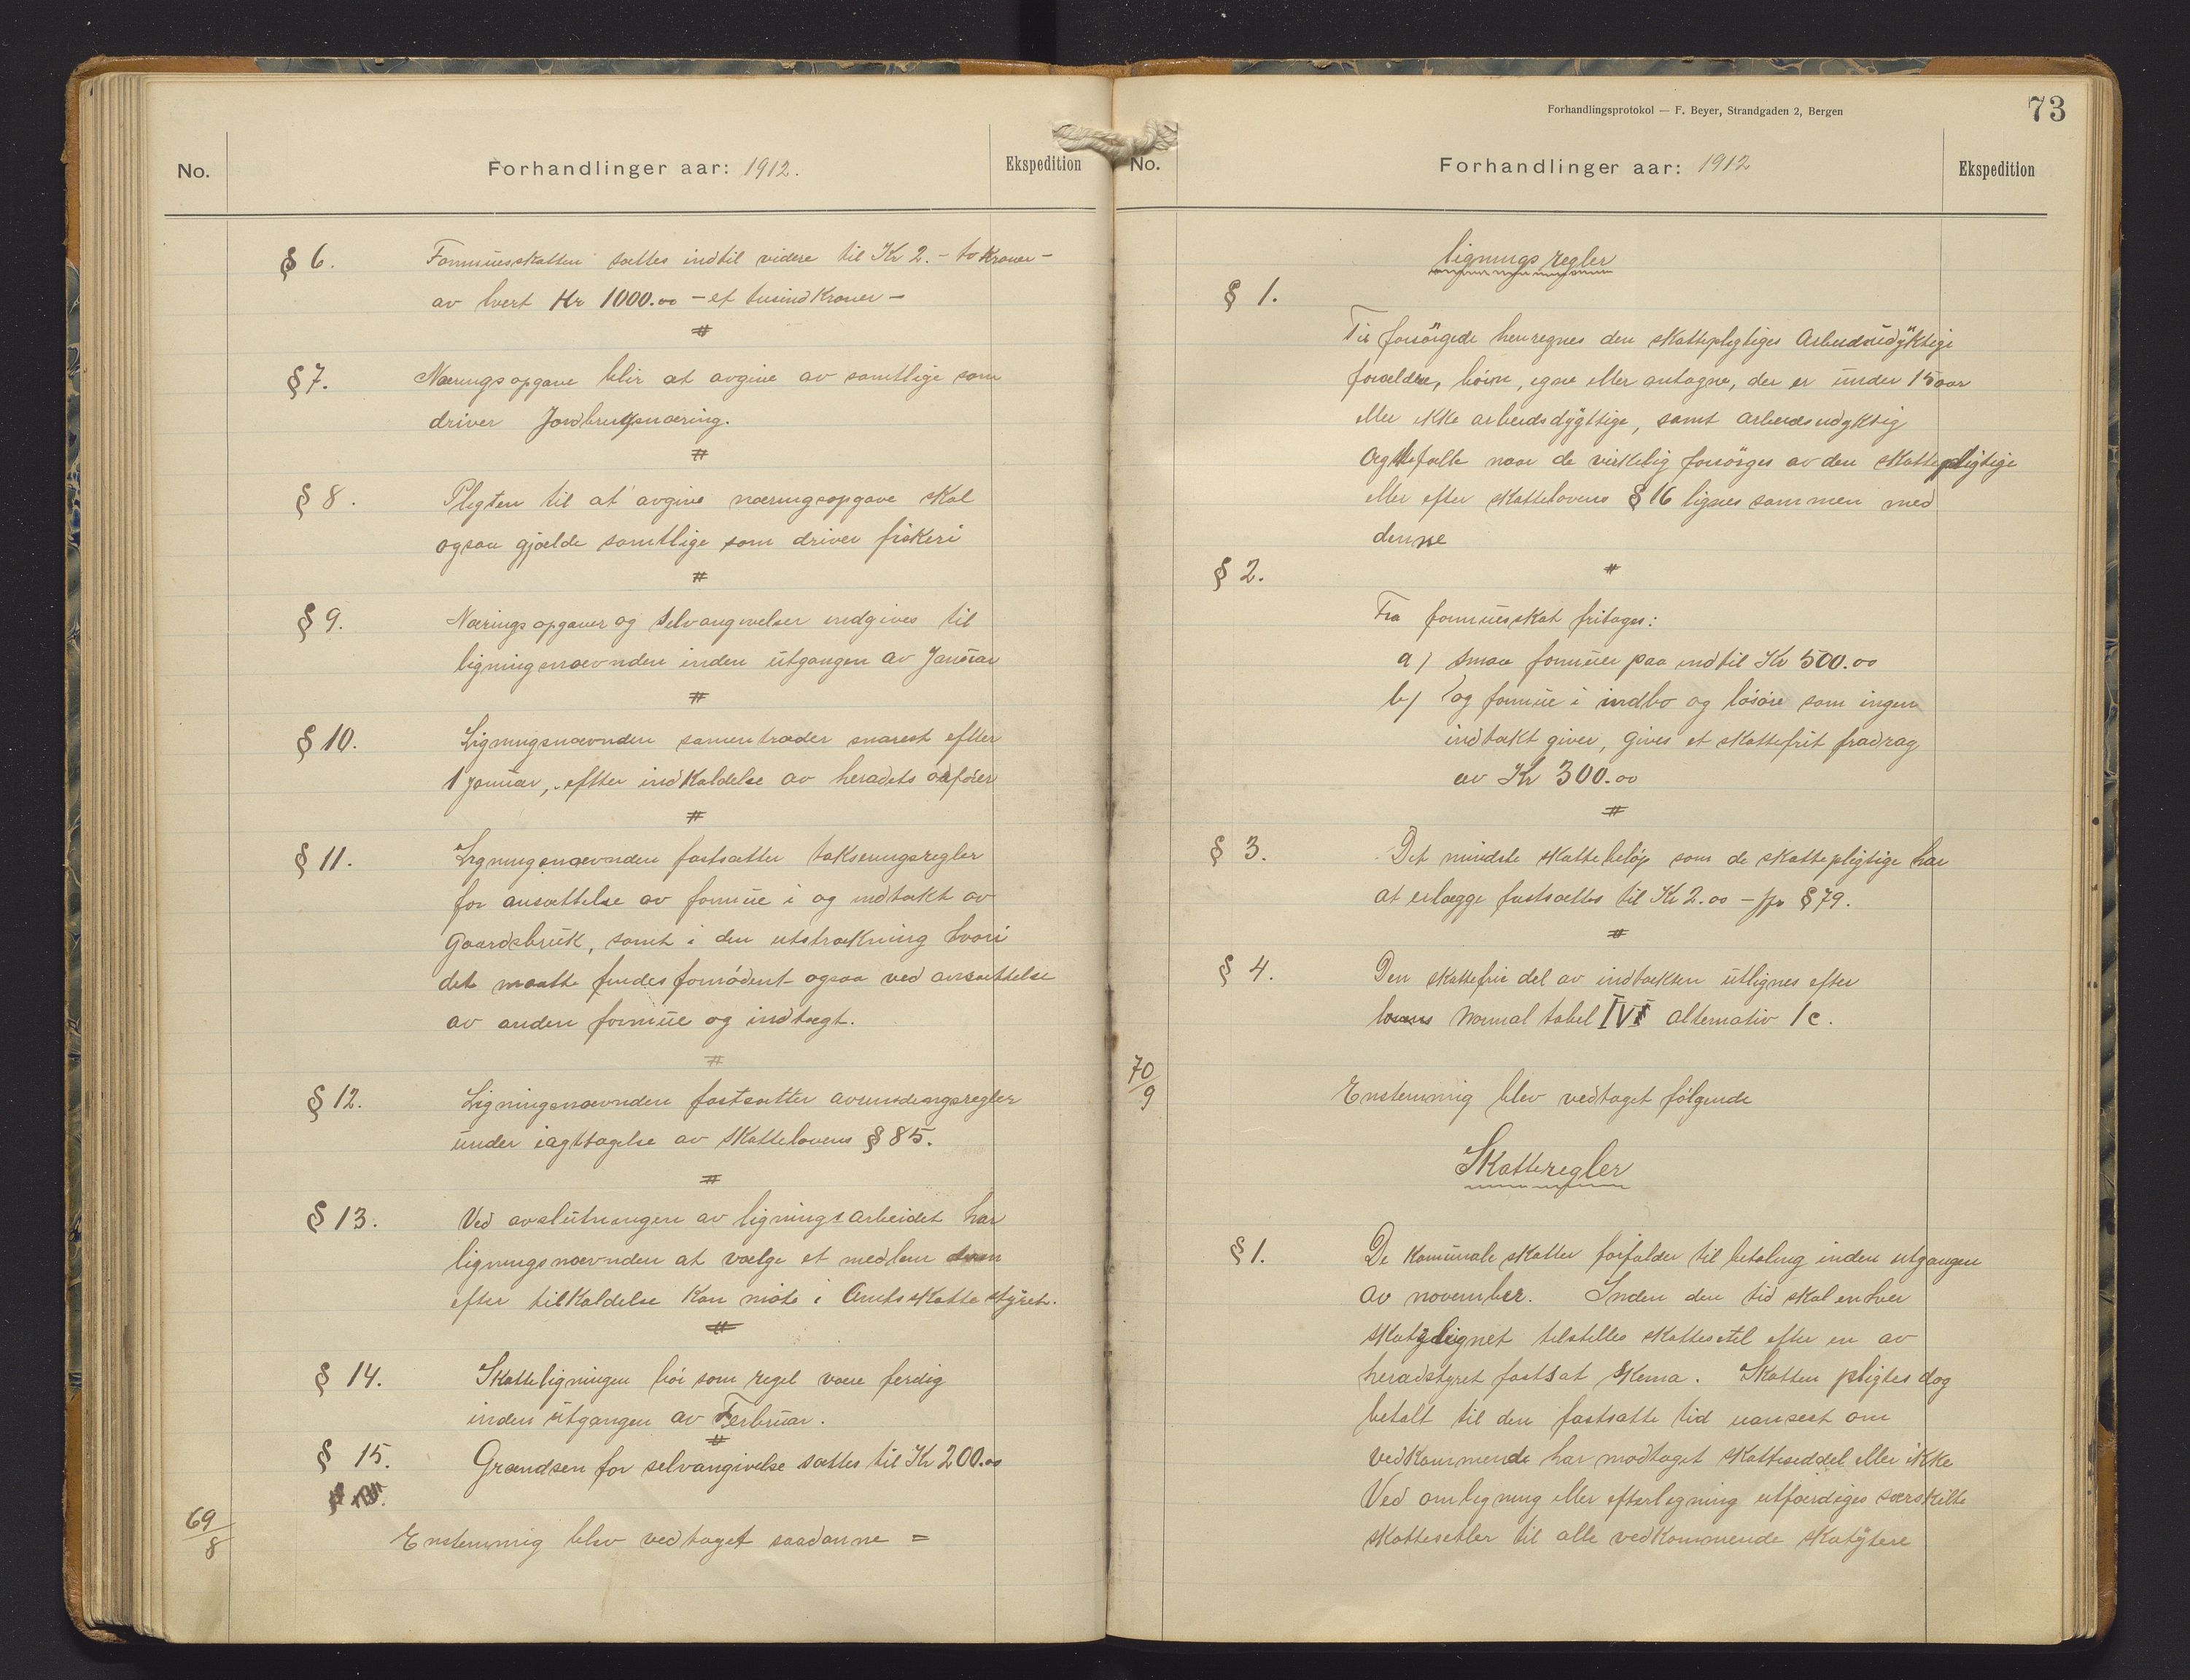 No.
Forhandlinger aar: 1912.
Ekspedition
§ 6. Formuesskatten sættes indtil videre til Kr 2.- to Kroner -
av hvert Kr 1000.00 - et tusind Kroner -
#
§ 7. Næringsopgave blir at avgive av samtlige som
driver Jordbruksnæring.
#
§ 8. Pligten til at avgive næringsopgave skal
ogsaa gjælde samtlige som driver fiskeri
#
§ 9. Næringsopgaver og selvangivelser indgives til
ligningsnævnden inden utgangen av Januar
#
§ 10. Ligningsnævnden samentræder snarest efter
1 januar, efter indkaldelse av heradets ordfører
#
§ 11. Ligningsnævnden fastsætter takseringsregler
for ansættelse av formue i og indtækt av
Gaardsbruk, samt i den utstrækning hvori
det maatte findes fornødent ogsaa ved ansættelse
av anden formue og indtægt.
#
§ 12. Ligningsnævnden fastsætter avrundingsregler
under iagttagelse av Skattelovens § 85.
#
§ 13. Ved avslutningen av ligningsarbeidet har
ligningsnævnden at vælge et medlem
efter tilkaldelse kan møte i Amtsskattestyret.
#
§ 14. Skatteligningen bør som regel være ferdig
inden utgangen av Ferbruar.
#
§ 15. Grændsen for selvangivelse sættes til Kr 200.00
69/8 Enstemmig blev vedtaget saadanne =
Forhandlingsprotokol — F. Beyer, Strandgaden 2, Bergen
73
No.
Forhandlinger aar: 1912
Ekspedition
ligningsregler
§ 1.
Til forsørgede henregnes den skattepligtiges Arbeidsudyktige
forældre, børn, egne eller antagne, der er under 15 aar
eller ikke arbeidsdygtige, samt arbeidsudyktig
Ægtefælle naar de virkelig forsørges av den skattepligtige
eller efter skattelovens § 16 lignes sammen med
denne
#
§ 2.
Fra formuesskat fritages:
a) smaa formuer paa indtil Kr 500.00
b) og formue i indbo og løsøre som ingen
indtækt giver, gives et skattefrit fradrag
av Kr 300.00
#
§ 3. Det mindste skattebeløp som de skattepligtige har
at erlægge fastsættes til Kr 2.00 - jfr § 79.
#
§ 4. Den skattefrie del av indtækten utlignes efter
lovens Normal tabel IV alternativ 1c.
70/9 Enstemmig blev vedtaget følgende
Skatteregler
§ 1. De Komunale skatter forfalder til betaling inden utgangen
av november. Inden den tid skal enhver
skatylignet tilstilles skattesetel efter en av
heradstyret fastsat skema. Skatten pligtes dog
betalt til den fastsatte tid uanseet om
vedkommende har modtaget skatteseddel eller ikke
Ved omligning eller efterligning utfærdiges særskilte
skattesetler til alle vedkommende skatytere